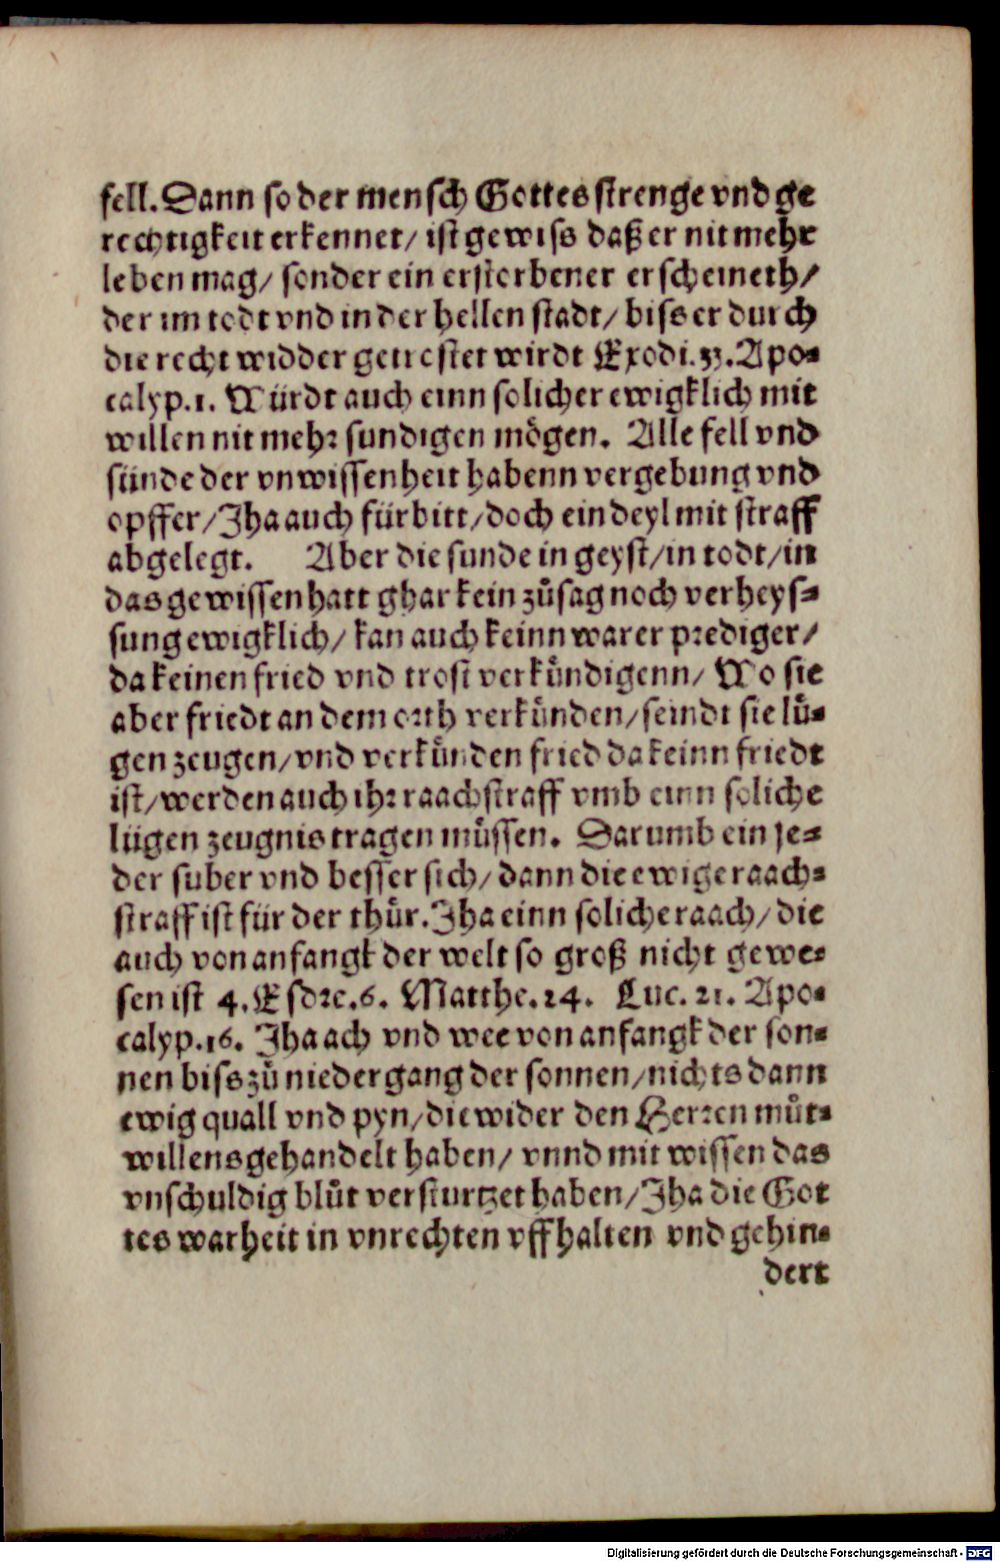 fell. Dann so der mensch Gottes strenge vnd ge
rechtigkeit erkennet/ ist gewiss daß er nit mehr
leben mag/ sonder ein erstorbener erscheineth/
der im todt vnd in der hellen stadt/ biss er durch
die recht widder getrostet wirdt Exodi. 33. Apo⸗
calyp. 1. Würdt auch einn solicher ewigklich mit
willen nit mehr sundigen mögen. Alle fell vnd
sünde der vnwissenheit habenn vergebung vnd
opffer/ Jha auch fürbitt/ doch ein deyl mit straff
abgelegt. Aber die sunde in geyst/ in todt/ in
das gewissen hatt ghar kein zůsag noch verheys⸗
sung ewigklich/ kan auch keinn warer prediger/
da keinen fried vnd trost verkůndigenn/ Wo sie
aber friedt an dem orth verkůnden/ seindt sie lů⸗
gen zeugen/ vnd verkůnden fried da keinn friedt
ist/ werden auch ihr raachstraff vmb einn soliche
lügen zeugnis tragen můssen. Darumb ein je⸗
der suber vnd besser sich/ dann die ewige raach⸗
straff ist für der thůr. Jha einn soliche raach/ die
auch von anfangk der welt so groß nicht gewe⸗
sen ist 4. Esdre. 6. Matthe. 24. Luc. 21. Apo⸗
calyp. 16. Jha ach vnd wee von anfangk der son⸗
nen biss zů niedergang der sonnen/ nichts dann
ewig quall vnd pyn/ die wider den Herren můt⸗
willens gehandelt haben/ vnnd mit wissen das
vnschuldig blůt versturtzet haben/ Jha die Got
tes warheit in vnrechten vffhalten vnd gehin⸗
dert
Digitalisierung gefördert durch die Deutsche Forschungsgemeinschaft - DFG